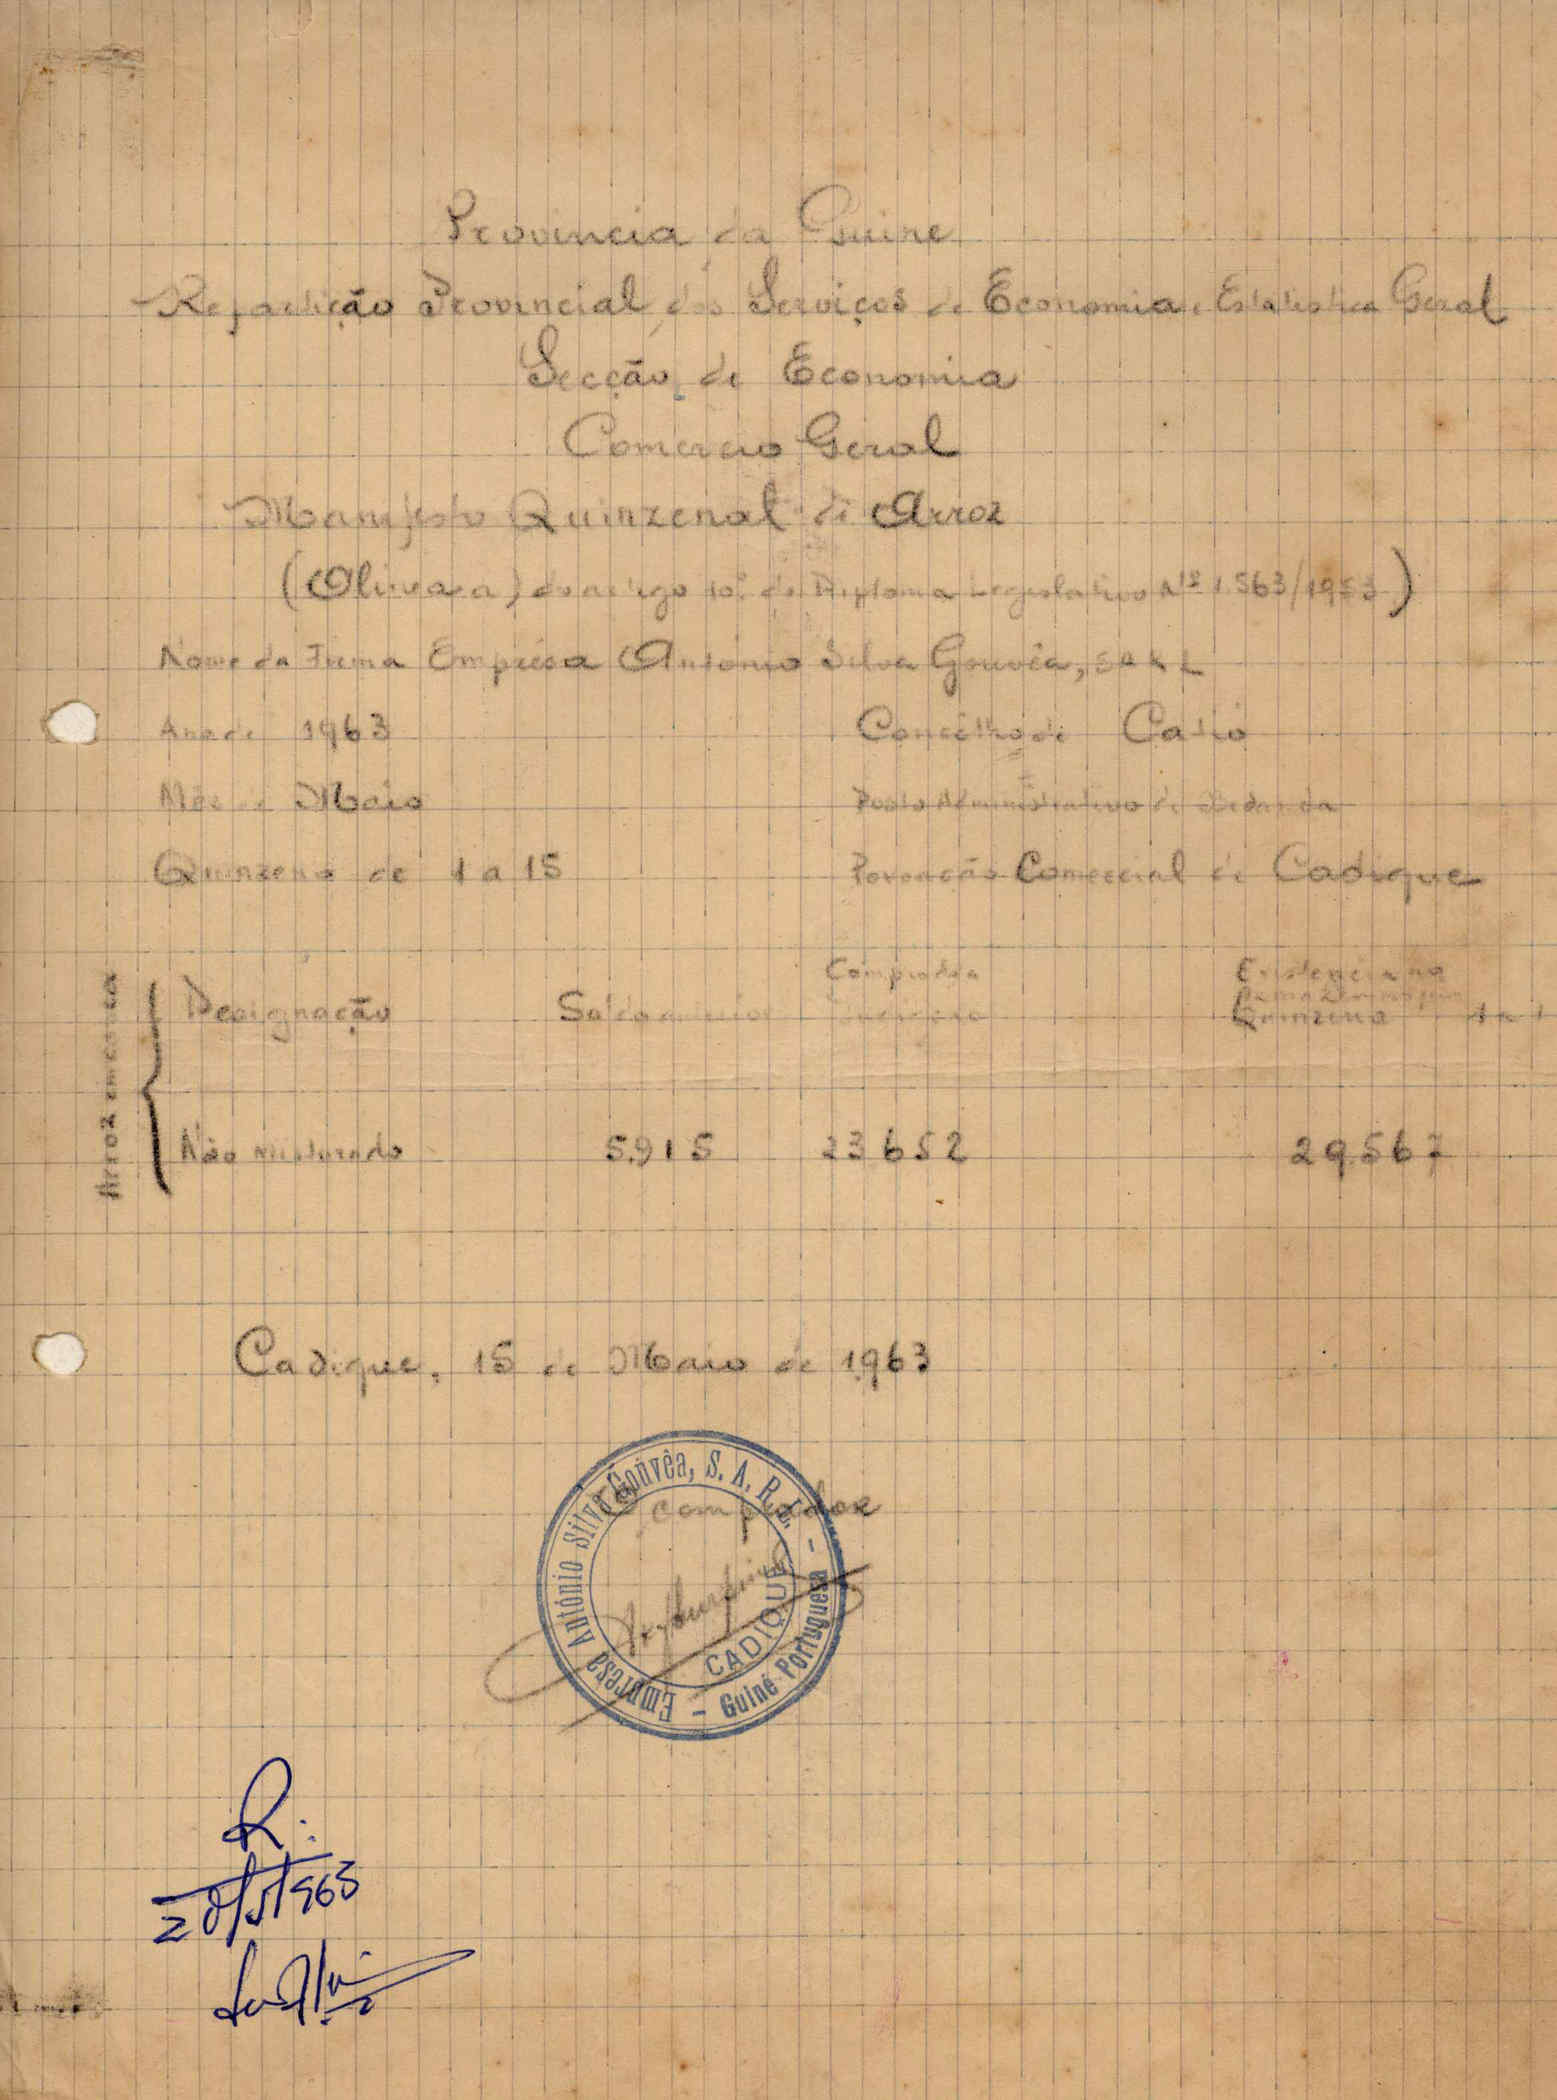 Provincia da Guine
Repartição Provincial dos Serviços de Economia e Estatistica Geral
Secção de Economia
Comercio Geral
Manifesto Quinzenal de Arroz
(Alinea a) do artigo 10º do Diploma Legislativo Nº 1.563/1953)
Nome da Firma Empresa António Silva Gouvêa, SARL
Ano de 1963 Concelho de Catió
Mês de Maio Posto Administrativo de Bedanda
Quinzena de 1 a 15 Povoação Comercial de Cadique
Arroz em casca
Designação Saldo anterior Comprado na quinzena Existencia no Quinzena
Não misturado 5.915 23652 29.567
Cadique, 15 de Maio de 1.963
O comprador
Empresa António Silva Gouvêa, S. A. R. L. - Guiné Portuguesa -
CADIQUE
R.
20/5/963